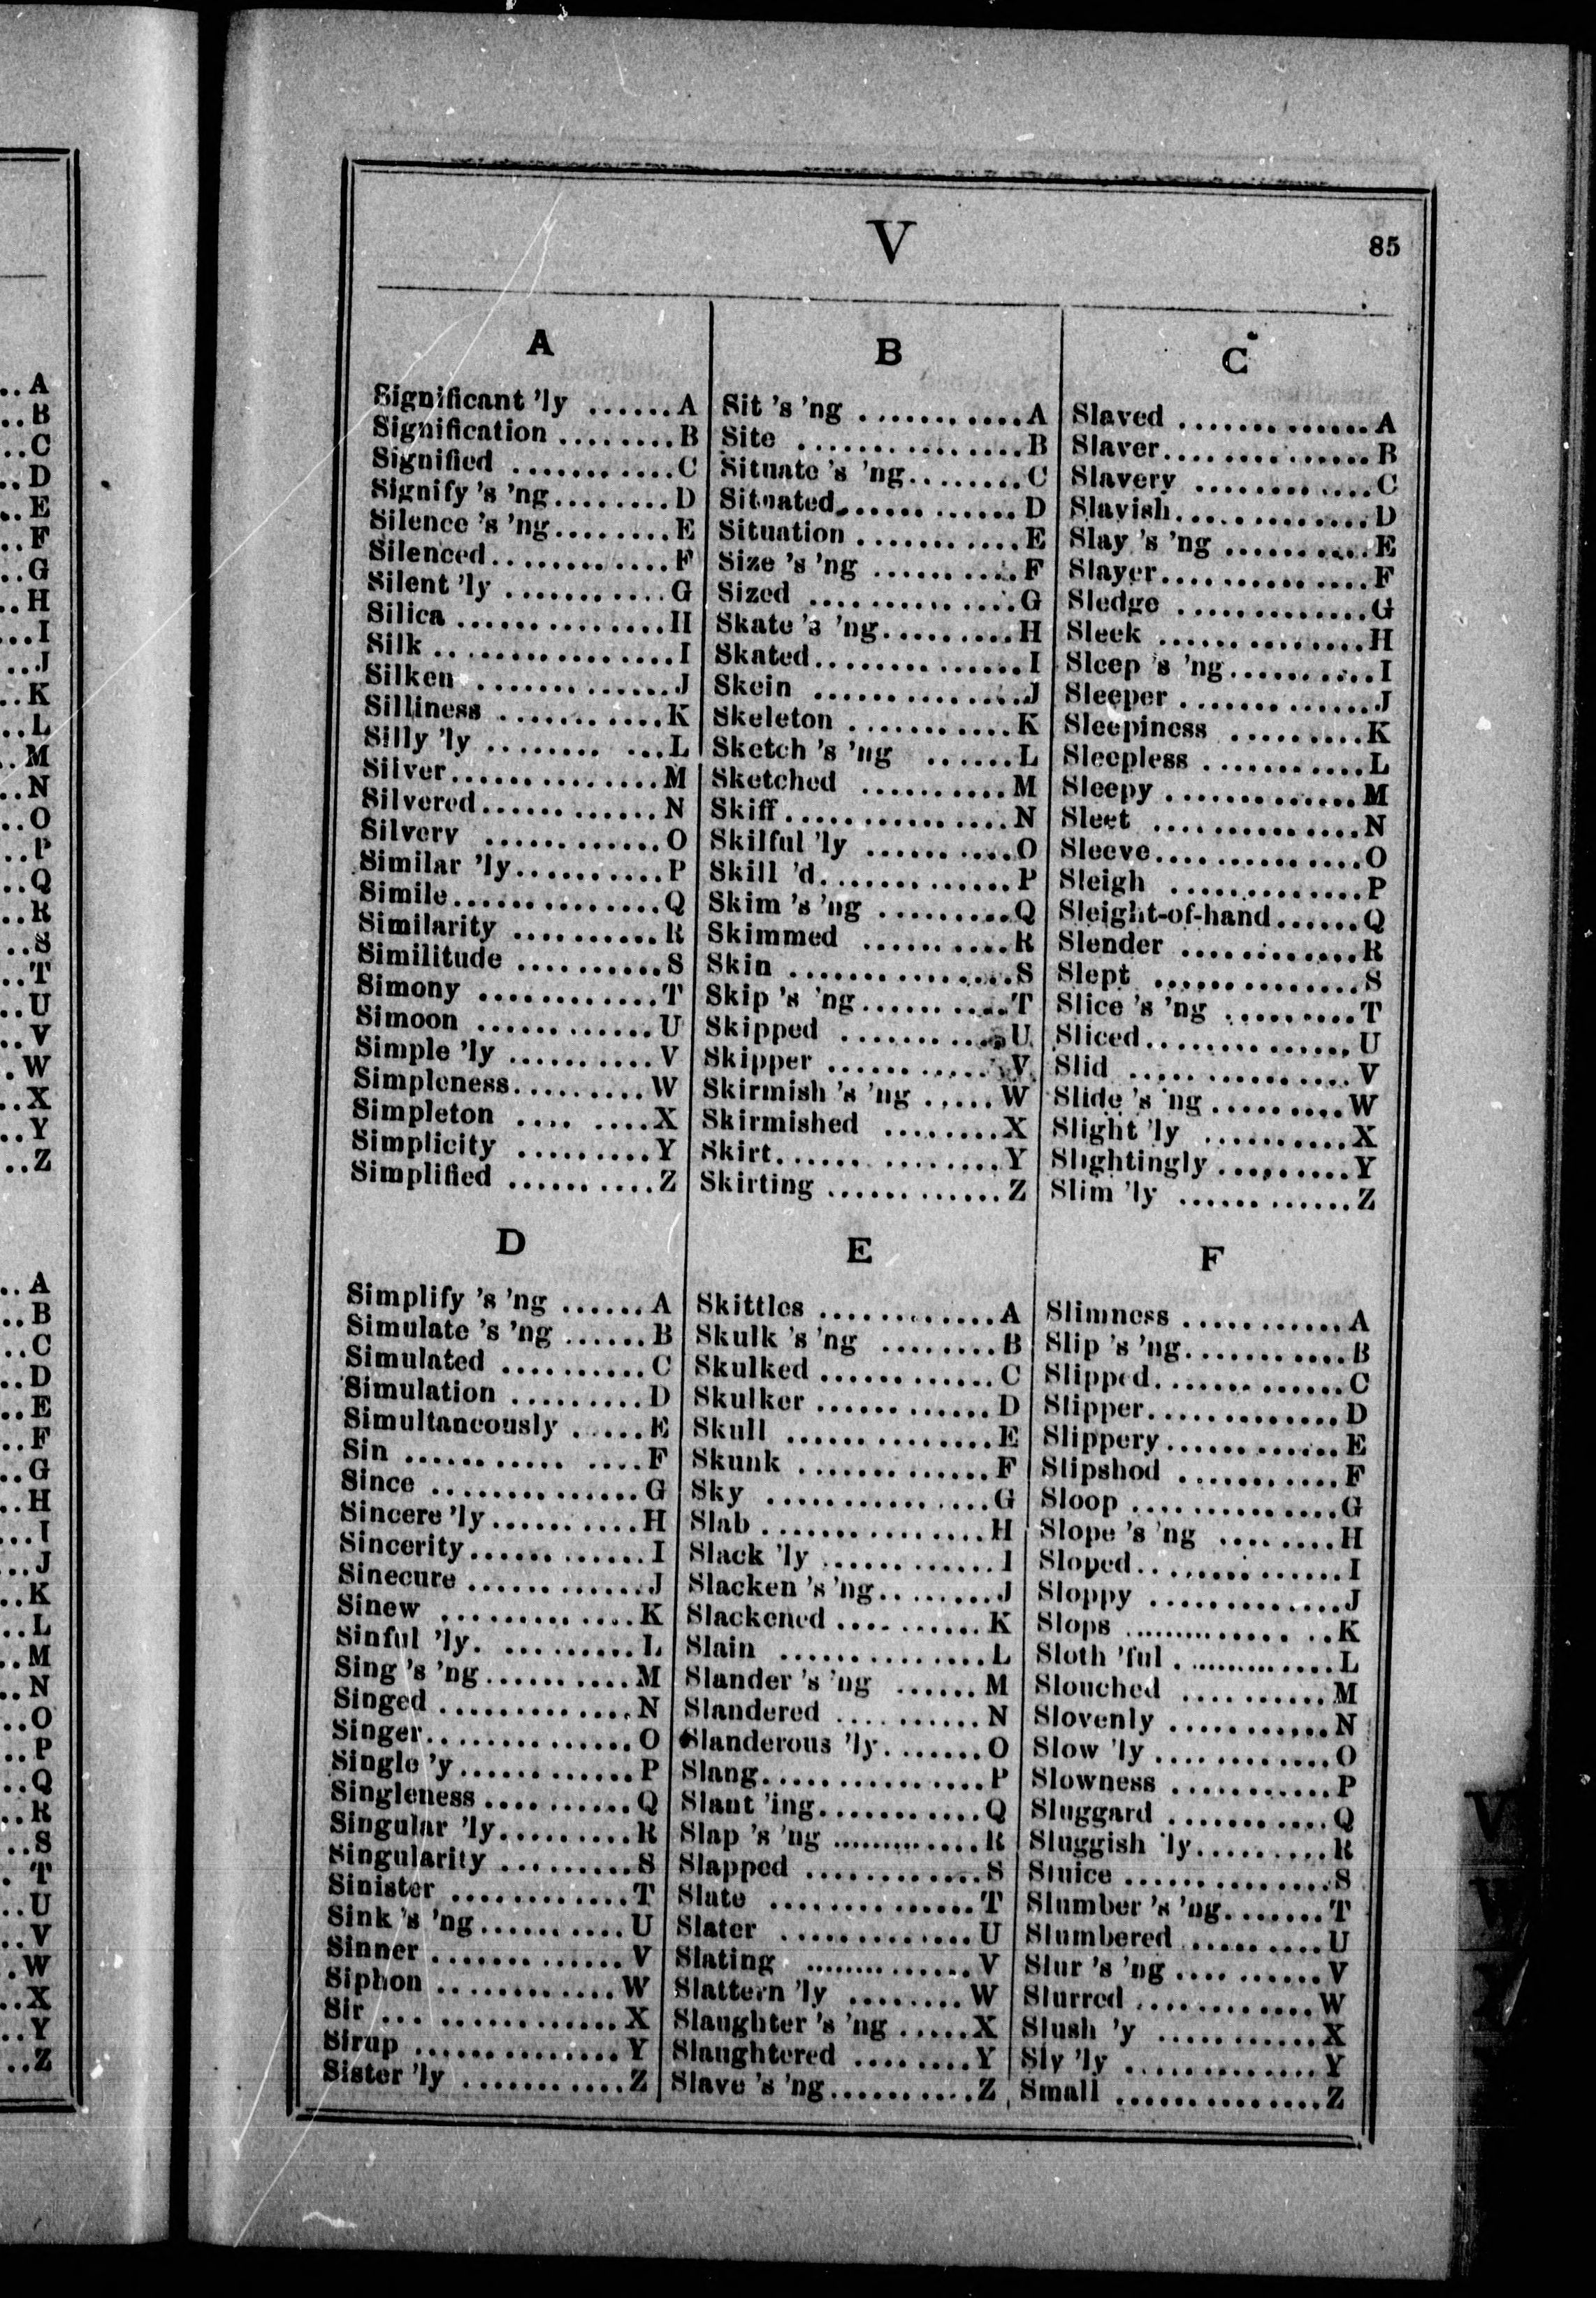 V
85
A
Significant 'ly ...... A
Signification ........ B
Signified ........... C
Signify 's 'ng ........ D
Silence 's 'ng ........ E
Silenced ............. F
Silent 'ly ........... G
Silica .............. H
Silk ................ I
Silken ............. J
Silliness ........... K
Silly 'ly ........ ... L
Silver ............... M
Silvered ............ N
Silvery ............ O
Similar 'ly .......... P
Simile .............. Q
Similarity .......... R
Similitude .......... S
Simony ............ T
Simoon ............ U
Simple 'ly .......... V
Simpleness .......... W
Simpleton .... ..... X
Simplicity ......... Y
Simplified .......... Z
B
Sit 's 'ng ........... A
Site ................ B
Situate 's 'ng ........ C
Situated ............ D
Situation ........... E
Size 's 'ng .......... F
Sized .............. G
Skate 's 'ng ......... H
Skated .............. I
Skein .............. J
Skeleton ........... K
Sketch 's 'ng ...... L
Sketched .......... M
Skiff ............... N
Skilful 'ly .......... O
Skill 'd ............. P
Skim 's 'ng ......... Q
Skimmed .......... R
Skin ............... S
Skip 's 'ng .......... T
Skipped ........... U
Skipper ........... V
Skirmish 's 'ng ..... W
Skirmished ........ X
Skirt ...... ........ Y
Skirting ............ Z
C
Slaved ............. A
Slaver .............. B
Slavery ............ C
Slavish ............. D
Slay 's 'ng .......... E
Slayer .............. F
Sledge ............. G
Sleek .............. H
Sleep 's 'ng .......... I
Sleeper ............. J
Sleepiness ......... K
Sleepless ........... L
Sleepy ............. M
Sleet .............. N
Sleeve .............. O
Sleigh ............. P
Sleight-of-hand ...... Q
Slender ............ R
Slept .............. S
Slice 's 'ng ......... T
Sliced .............. U
Slid ............... V
Slide 's 'ng ......... W
Slight 'ly .......... X
Slightingly ......... Y
Slim 'ly ............ Z
D
Simplify 's 'ng ...... A
Simulate 's 'ng ...... B
Simulated .......... C
Simulation ......... D
Simultaneously ..... E
Sin ........... .... F
Since .............. G
Sincere 'ly .......... H
Sincerity ............ I
Sinecure ............ J
Sinew ............. K
Sinful 'ly. ......... L
Sing 's 'ng .......... M
Singed ............. N
Singer .............. O
Single 'y ............ P
Singleness .......... Q
Singular 'ly ......... R
Singularity ......... S
Sinister ............ T
Sink 's 'ng .......... U
Sinner ............. V
Siphon ............ W
Sir ... ............ X
Sirup .............. Y
Sister 'ly ........... Z
E
Skittles ............ A
Skulk 's 'ng ........ B
Skulked ............ C
Skulker ............ D
Skull .............. E
Skunk ............. F
Sky ............... G
Slab ............... H
Slack 'ly ............ I
Slacken 's 'ng ........ J
Slackened .......... K
Slain .............. L
Slander 's 'ng ...... M
Slandered .......... N
Slanderous 'ly ....... O
Slang ............... P
Slant 'ing ........... Q
Slap 's 'ng ........... R
Slapped ............ S
Slate .............. T
Slater ............. U
Slating ............ V
Slattern 'ly ........ W
Slaughter 's 'ng ..... X
Slaughtered ........ Y
Slave 's 'ng .......... Z
F
Slimness ........... A
Slip 's 'ng ........... B
Slipped ............. C
Slipper ............. D
Slippery ............ E
Slipshod ........... F
Sloop .............. G
Slope 's 'ng ........ H
Sloped .............. I
Sloppy ............. J
Slops ............... K
Sloth 'ful ............ L
Slouched .......... M
Slovenly ........... N
Slow 'ly ............ O
Slowness ........... P
Sluggard ........... Q
Sluggish 'ly ......... R
Sluice .............. S
Slumber 's 'ng ....... T
Slumbered ......... U
Slur 's 'ng .......... V
Slurred ............ W
Slush 'y ........... X
Sly 'ly ............. Y
Small .............. Z
..A
..B
..C
..D
..E
..F
..G
..H
...I
...J
..K
..L
..M
..N
..O
..P
..Q
..R
..S
..T
..U
..V
.W
..X
..Y
..Z
..A
..B
..C
..D
..E
..F
..G
..H
...I
...J
..K
..L
..M
..N
..O
..P
..Q
..R
..S
.T
..U
..V
.W
..X
..Y
..Z